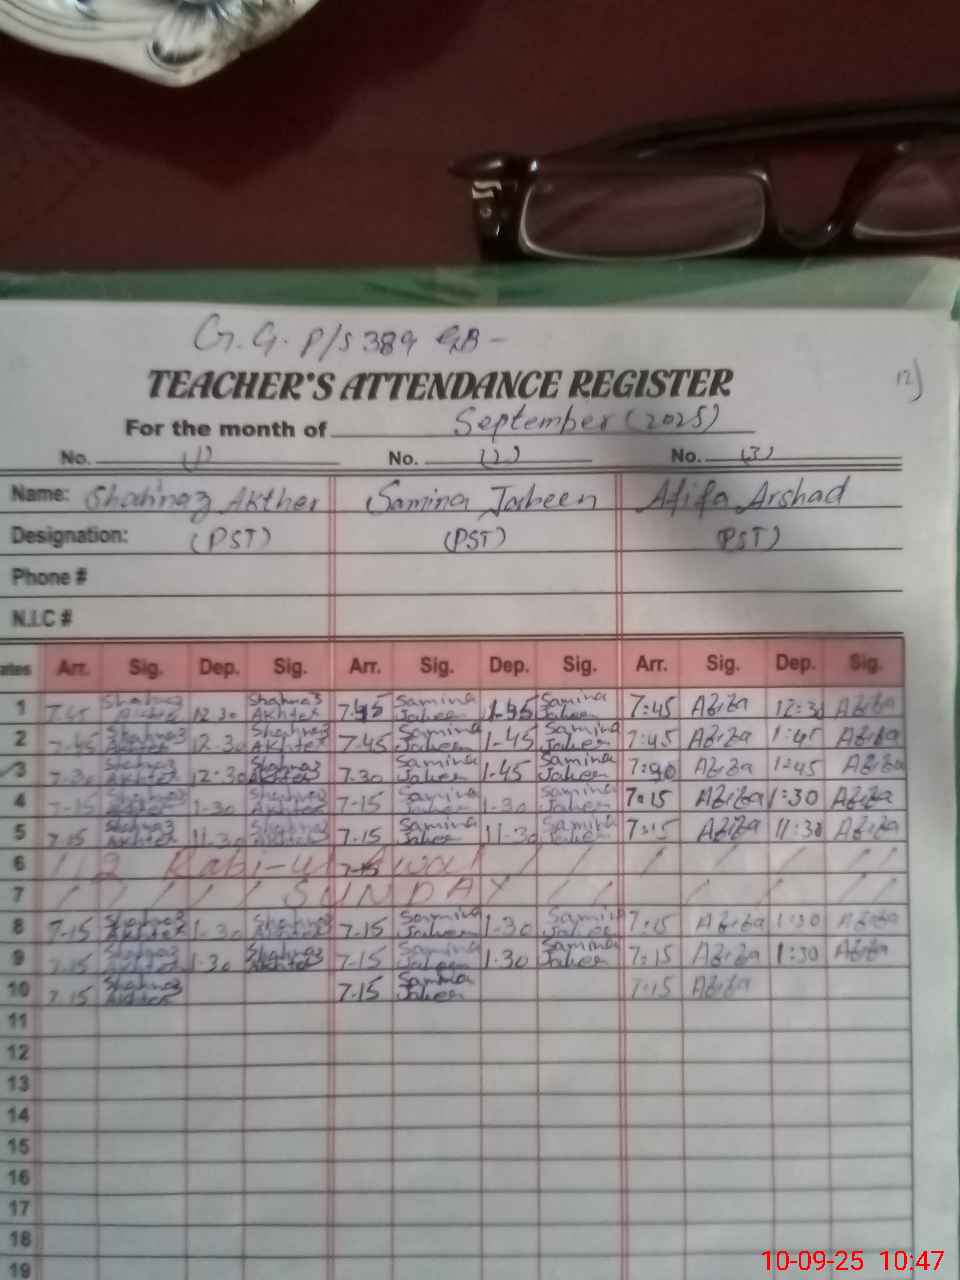 G.G. P/S 389 GB -
TEACHER'S ATTENDANCE REGISTER
12)
For the month of September (2025)
No. (1) No. (2) No. (3)
Name: Shahnaz Akther Samina Jabeen Afifa Arshad
Designation: (PST) (PST) (PST)
Phone #
N.I.C #
ates Arr. Sig. Dep. Sig. Arr. Sig. Dep. Sig. Arr. Sig. Dep. Sig.
1 7.45 Shahnaz Akhter 12.30 Shahnaz Akhter 7.45 Samina Jabeen 1.45 Samina Jabeen 7:45 12:30
2 7-45 Shahnaz Akhter 12-30 Shahnaz Akhter 7.45 Samina Jabeen 1-45 Samina Jabeen 7:45 1:45
3 7.30 Shahnaz Akhter 12:30 Shahnaz Akhter 7.30 Samina Jabeen 1.45 Samina Jabeen 1:45
4 7-15 Shahnaz Akhter 1.30 Shahnaz Akhter 7-15 Samina Jabeen 1.30 Samina Jabeen 7:15 1:30
5 7.15 Shahnaz Akhter 11.30 Shahnaz Akhter 7-15 Samina Jabeen 11-30 Samina Jabeen 7:15 11:30
6 12 Rabi-ul Awal
7 SUNDAY
8 7-15 Shahnaz Akhter 1-30 Shahnaz Akhter 7.15 Samina Jabeen 1-30 Samina Jabeen 7:15 1:30
9 7.15 Shahnaz Akhter 1.30 Shahnaz Akhter 7-15 Samina Jabeen 1.30 Samina Jabeen 7:15 1:30
10 7.15 Shahnaz Akhter 7-15 Samina Jabeen 7:15
11
12
13
14
15
16
17
18
19
10-09-25 10:47